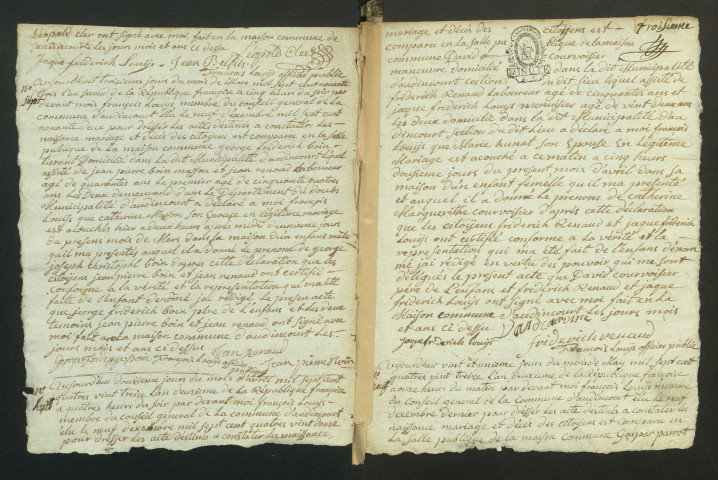 Léopold cler ont signé avec moi fait en la maison commune de
audincourt les jours mois et ans ci desu
jaque frederich Louÿs Jean Léopold Cler
françois Louÿs officier public
No sept
aujourdhui troisieme jours du mois de Mars mil sept cent nonante
trois l'an second de la République française a cinq heurs du soir par
devant moi françois Louÿs, membre du conseil general de la
commune d'audincourt élu le neuf d'exembre mil sept cent
nonante deux pour dresser les actes destines a constater les
naissance mariage et décès des citoyens est comparu en la salle
publique de la maison commune george friderich boin
Domicilié dans la dit Municipalité d'audincourt lequel
assiste de jean pierre boin masson et jean renaud labboureur
age de quarante ans le premier age de cinquante
ans Les Deux demeurant dans Le Departement du Doubs
Municipalité d'audincourt a déclaré a moi françois
Louÿs que catherine Masson son Epouse en legitime mariage
est accouchés hier a deux heurs apres midi deuxieme jours
du présent mois de Mars dans sa maison d'un enfant male
qu'il ma présentes auquel il a donné le prenoms de george
joseph christophe boin d'apres cette déclaration que les
citoyens jean pierre boin et jean renaud ont certifié
conforme a la vérité et la representation qui ma été
faite de L'enfant denomé jai rédigé le présent acte
que george friderich boin père de L'enfant et les deux
temoins jean pierre boin et jean renaud ont signé avec
moi fait a la maison commune d'audincourt Les
jours mois et ans ci dessus
Jean renaud
françois Louÿs officier public
Jean piere boin
No huit
aujourdhui douzieme jours du mois d'avril mil sept cent
quatres vint treize l'an deuxieme de la République française
a quatres heurs du soir par devant moi françois Louÿs
membre du conseil general de la commune d'audincourt
élu le neuf d'exembre mil sept cent quatres vint douse
pour dresser les acte destines a constater les naissance
mariage et décès des citoyens est
troisieme
comparu en la salle publique de la maison
commune David courvoisier
MINUTE
maneuvre domicilié dans la dit Municipalité
d'audincourt section du dit lieu lequel assisté de
friderich Renaud Laboureur agé de cinquantes ans et
jaque friderich Louÿs menuisier agé de vint deux ans
les deux domicilié dans la dit Municipalité d'au
dincourt section du dit Lieu a déclaré a moi françois
Louÿs que Marie hunat son Epouse en Legitime
Mariage est acouché a ce matin a cinq heurs
dousieme jours du présent mois d'avril dans sa
maison d'un enfant femelle qu'il ma présenté
et auquel il a donné le prenoms de catherine
Marguerithe courvoisier d'après cette déclaration
que les citoyens friderich Renaud et jaque friderich
Louÿs ont certifié conforme a la vérité et la
representation qui ma été fait de L'enfant dénom
mé jai rédigé en vertu des pouvoir qui me sont
délégués le présent acte que David courvoisier
père de L'enfant et friderich Renaud et jaque
friderich Louÿs ont signés avec moi fait en la
Maison commune d'audincourt les jours mois
et ans ci desu
jaque friderich Louÿs
friderich renaud
françois Louÿs officier public
No neuf
aujourdhui vint et unieme jours du mois de Mai mil sept cent
quatres vint treize L'an deuxieme de la république française
a onze heurs du matin par devant moi françois Louÿs membre
du Conseil general de la commune d'audincourt élu le neuf
d'exembre dernier pour dresser les actes destines a constater les
naissance mariage et décès des citoyens est comparu en
la salle publique de la maison Commune Gaspar parrot